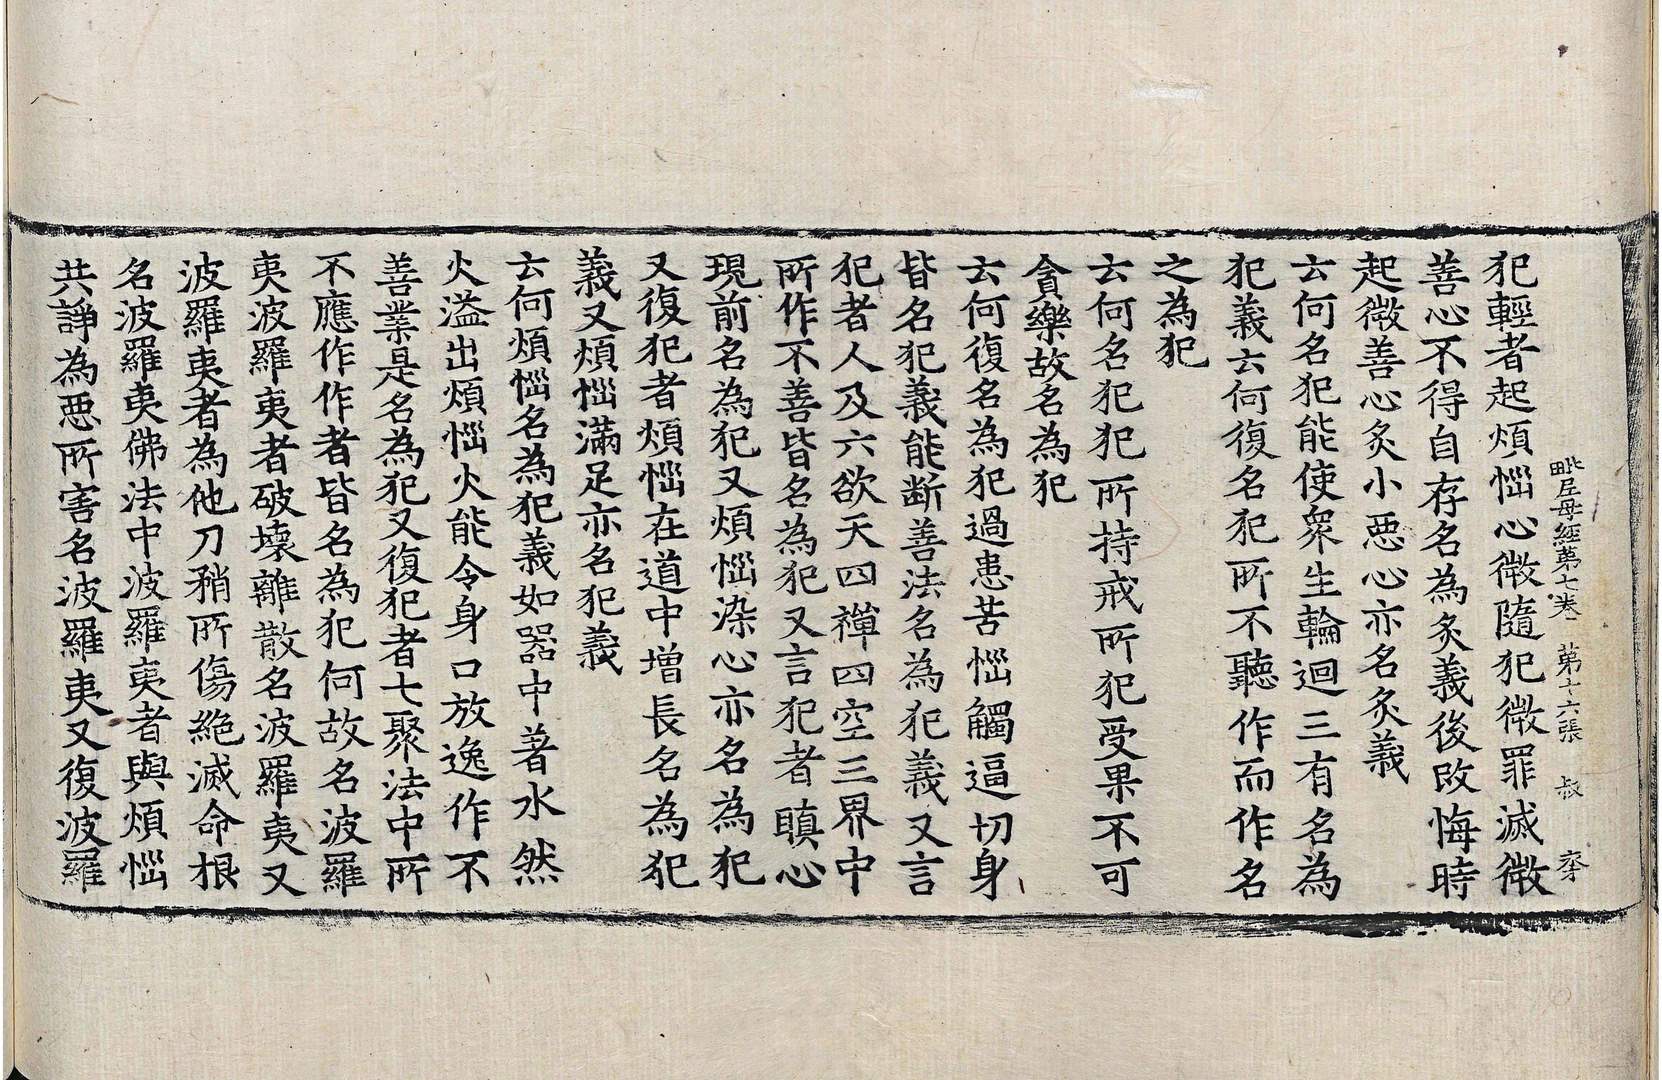 毗尼母經第七卷 第十六張 叔
犯輕者起煩惱心微隨犯微罪滅微
善心不得自存名為炙義後改悔時
起微善心炙小惡心亦名炙義
云何名犯能使衆生輪迴三有名為
犯義云何復名犯所不聽作而作名
之為犯
云何名犯犯所持戒所犯受果不可
貪樂故名為犯
云何復名為犯過患苦惱觸逼切身
皆名犯義能断善法名為犯義又言
犯者人及六欲天四禪四空三界中
所作不善皆名為犯又言犯者瞋心
現前名為犯又煩惱染心亦名為犯
又復犯者煩惱在道中增長名為犯
義又煩惱滿足亦名犯義
云何煩惱名為犯義如器中著水然
火溢出煩惱火能令身口放逸作不
善業是名為犯又復犯者七聚法中所
不應作作者皆名為犯何故名波羅
夷波羅夷者破壞離散名波羅夷又
波羅夷者為他刀矟所傷絕滅命根
名波羅夷佛法中波羅夷者與煩惱
共諍為惡所害名波羅夷又復波羅